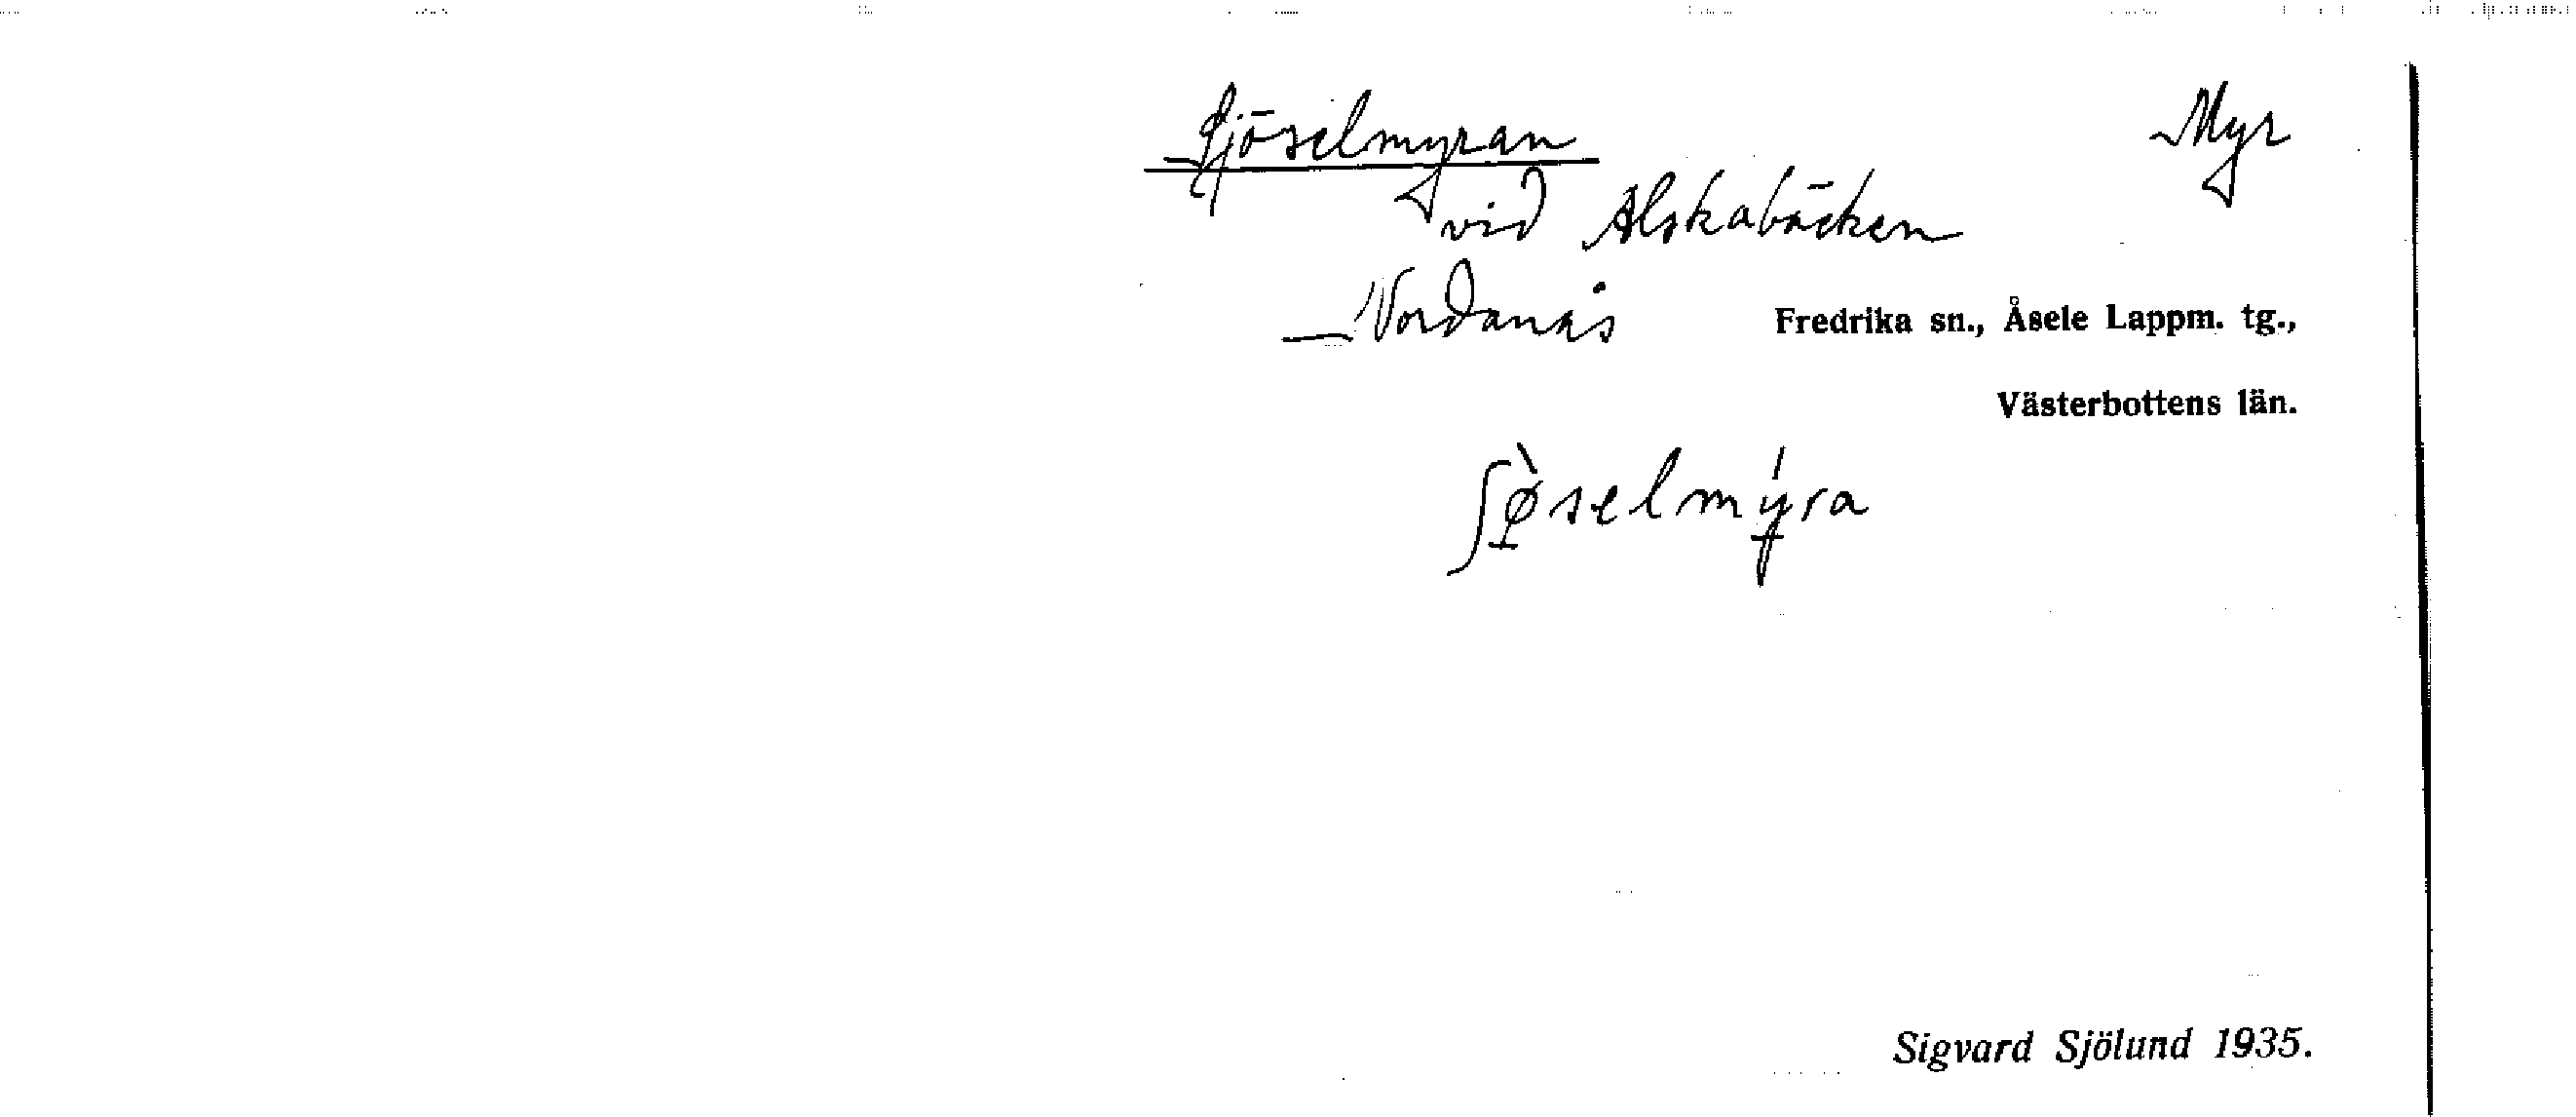 Sjöselmyran Myr
vid Alskabäcken
Nordanås Fredrika sn., Åsele Lappm. tg.,
Västerbottens län.
ʃø̀selmýra
Sigvard Sjölund 1935.